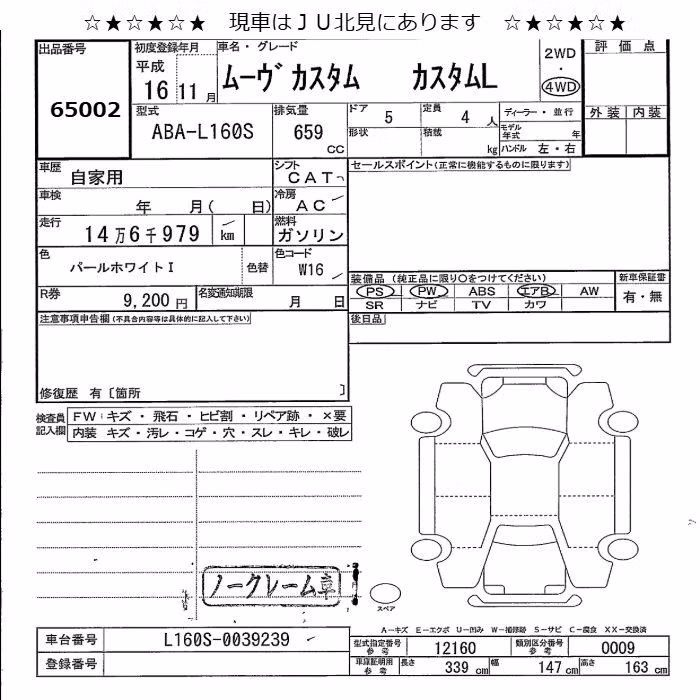 ☆★☆★☆★ 現車はＪＵ北見にあります ☆★☆★☆★
出品番号
65002
初度登録年月
平成
16 11 月
車名・グレード
ムーヴ カスタム カスタムL
2WD
・
4WD
評価点
外装 内装
型式
ABA-L160S
排気量
659
CC
ドア
5
定員
4 人
形状
積載
kg
ディーラー・並行
モデル年式 年
ハンドル 左・右
車歴
自家用
シフト
CAT
車検
年 月( 日)
冷房
AC
走行
14万6千979
km
燃料
ガソリン
色
パールホワイトⅠ
色替
色コード
W16
R券
9,200 円
名変通知期限
月 日
セールスポイント(正常に機能するものに限ります)
装備品 (純正品に限り○をつけてください)
PS PW ABS エアB AW
SR ナビ TV カワ
新車保証書
有・無
後日品
注意事項申告欄(不具合内容等は具体的に記入して下さい)
修復歴 有〔箇所 〕
検査員
記入欄
FW:キズ・飛石・ヒビ割・リペア跡・×要
内装 キズ・汚レ・コゲ・穴・スレ・キレ・破レ
ノークレーム車
スペア
A-キズ E-エクボ U-凹み W-補修跡 S-サビ C-腐食 XX-交換済
車台番号
L160S-0039239
登録番号
型式指定番号
参考
12160
類別区分番号
参考
0009
車庫証明用
参考
長さ
339 cm
幅
147 cm
高さ
163 cm